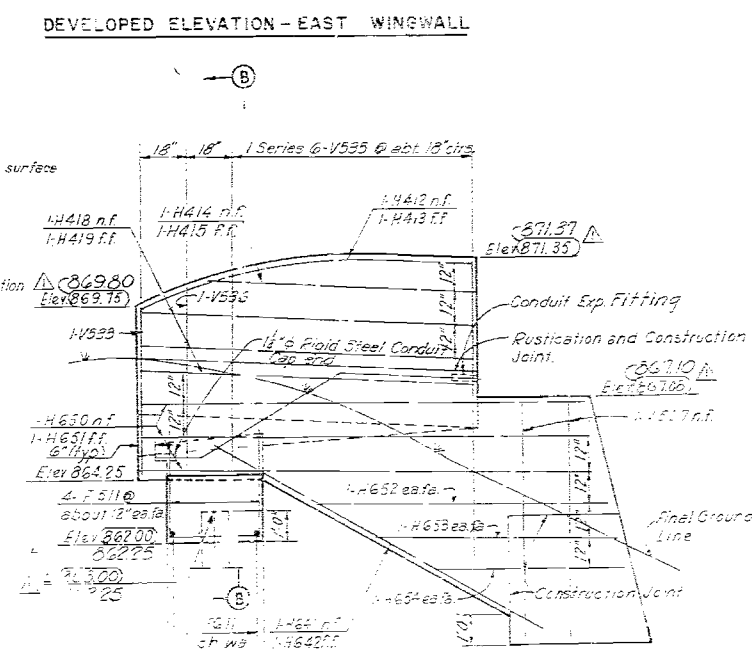 DEVELOPED ELEVATION - EAST WINGWALL
B
18" 18" 1 Series 6-V535 @ abt. 18" ctrs.
surface
1-H418 n.f.
1-H419 f.f.
1-H414 n.f.
1-H415 f.f.
1-H412 n.f.
1-H413 f.f.
871.37
Elev. 871.35
1
869.80
Elev. 869.75
1-V533
12"
12"
12"
Conduit Exp. Fitting
1-V533
1½"ø Rigid Steel Conduit
Cap end
Rustication and Construction
Joint.
867.10
Elev. 867.08
12"
12"
1-H650 n.f.
1-H651 f.f.
6" (typ)
Elev. 864.25
n.f.
12"
12"
12"
4-F511 @
about 12" ea.fa.
1-H652 ea.fa.
1'-0"
1-H653 ea.fa.
Elev. 862.00
862.25
Final Ground
Line
1-H654 ea.fa.
Construction Joint
B
1-H641 n.f.
1-H642 f.f.
1'-0"